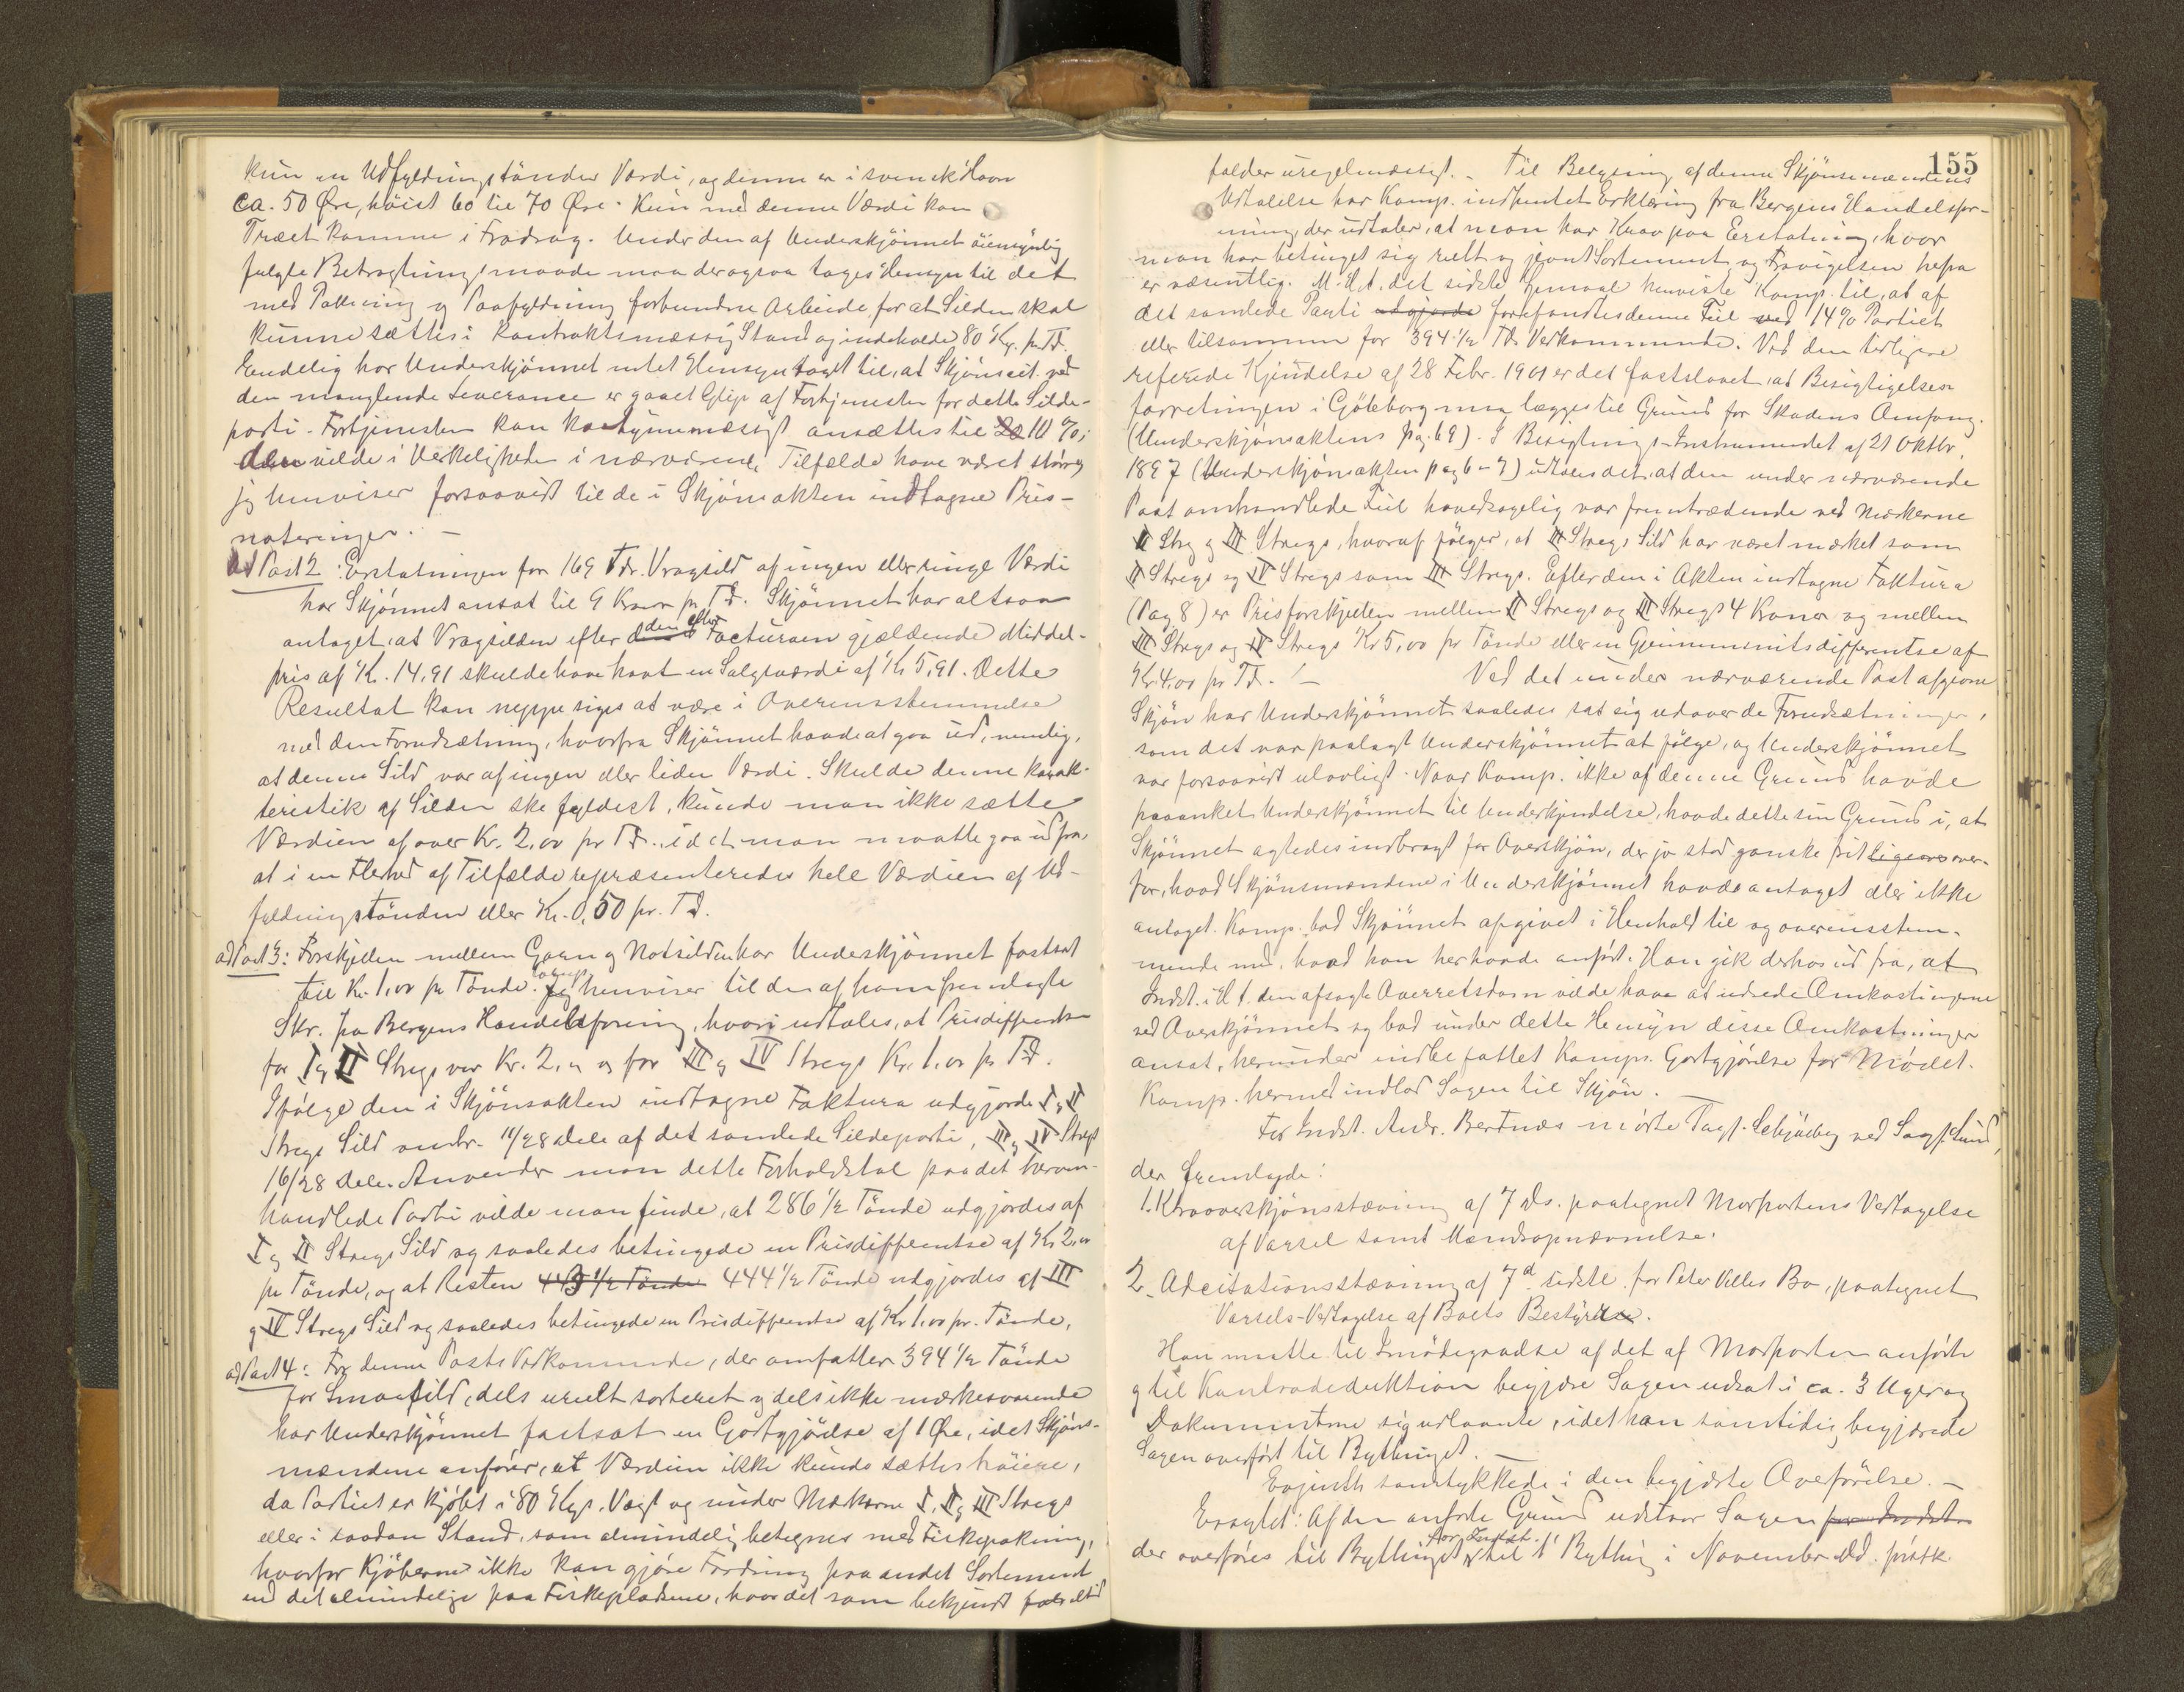 kun en Udfyldningstøndes Værdi, og denne er i svensk Havn
ca. 50 Øre, høist 60 til 70 Øre. Kun med denne Værdi kan
Træet komme i Fradrag. Under den af Underskjønnet øiensynlig
fulgte Betragtningsmaade maa der ogsaa tages Hensyn til det
med Pakning og Paafyldning forbundne Arbeide, for at Silden skal
kunne sættes i kontraktsmæssig Stand og indeholde 80 Kg. pr. Td.
Endelig har Underskjønnet intet Hensyn taget til, at Skjønscit. ved
den manglende Leverance er gaaet Glip af Fortjenesten for dette Silde-
parti. Fortjenesten kan ansættes til 20 10 %;
den vilde i Virkeligheden i nærværende Tilfælde have været større,
jeg henviser forsaavidt til de i Skjønsakten indtagne Pris-
noteringer. —
ad Post 2: Erstatningen for 169 Tdr. Vragsild af ingen eller ringe Værdi
har Skjønnet ansat til 9 Kroner pr Td. Skjønnet har altsaa
antaget, at Vragsilden efter den efter Facturaen gjældende Middel-
pris af Kr. 14,91 skulde have havt en Salgsværdi af Kr 5,91. Dette
Resultat kan neppe siges at være i Overensstemmelse
med den Forudsætning, hvorfra Skjønnet havde at gaa ud, nemlig,
at denne Sild var af ingen eller liden Værdi. Skulde denne karak-
teristik af Silden ske fyldest, kunde man ikke sætte
Værdien af over Kr. 2,00 pr Td., idet man maatte gaa ud fra,
at i en Flerhed af Tilfælde repræsenteredes hele Værdien af Ud-
fyldningstønden eller Kr. 0,50 pr. Td.
ad Post 3: Forskjellen mellem Garn og Notsilden har Underskjønnet fastsat
til Kr. 1,00 pr Tønde. Jeg Komp. henviser til den af ham fremlagte
Skr. fra Bergens Handelsforening, hvori udtales, at Prisdifferentsen
for I og II Stregs var Kr. 2,00 og for III og IV Stregs Kr. 1,00 pr Td.
Ifølge den i Skjønsakten indtagne Faktura udgjorde I og II
Stregs Sild omtr. 11/28 Dele af det samlede Sildeparti, III og IV Stregs
16/28 Dele. Anvender man dette Forholdstal paa det herom-
handlede Parti vilde man finde, at 286 1/2 Tønde udgjordes af
I og II Stregs Sild og saaledes betingede en Prisdifferentse af Kr 2,00
pr Tønde, og at Resten 443 1/2 Tønde 444 1/2 Tønde udgjordes af III
og IV Stregs Sild og saaledes betingede en Prisdifferentse af Kr 1,00 pr. Tønde.
ad Post 4: For denne Posts Vedkommende, der omfatter 394 1/2 Tønde
for Smaasild, dels ureelt sorteret og dels ikke mærkesvarende
har Underskjønnet fastsat en Godtgjørelse af 1 Øre, idet Skjøns-
mændene anfører, at Værdien ikke kunde sættes høiere,
da Partiet er kjøbt i 80 Kgs. Vægt og under Mærkerne I, II og III Stregs
eller i saadan Stand, som almindelig betegnes med Fiskepakning,
hvorfor Kjøberne ikke kan gjøre Fordring paa andet Sortement
end det almindelige paa Fiskepladsene, hvor det som bekjendt altid
155
falder uregelmæssigt. – Til Belysning af denne Skjønsmændenes
Udtalelse har Komp. indhentet Erklæring fra Bergens Handelsfor-
ening, der udtaler, at man har Krav paa Erstatning, hvor
man har betinget sig reelt og jevnt Sortement og Fravigelsen herfra
er væsentlig. M. H. t. det sidste Spørsmaal henviste Komp. til, at af
det samlede Parti udgjorde forefandtes denne Feil ved 14 % Partiet
eller tilsammen for 394 1/2 Tdr Vedkommende. Ved den tidligere
refererede Kjendelse af 28 Febr. 1901 er det fastslaaet, at Besigtigelses-
forretningen i Gøteborg maa lægges til Grund for Skadens Omfang.
(Underskjønsaktens pag. 69). I Besigtnings-Instrumentet af 21 Oktbr.
1897 (Underskjønsakten pag 6-7) udtales det at den under nærværende
Post omhandlede Feil hovedsagelig var fremtrædende ved Mærkerne
II Streg og III Stregs, hvoraf følger, at III Stregs Sild har været mærket som
II Stregs og IV Stregs som III Stregs. Efter den i Akten indtagne Faktura
(Pag 8) er Prisforskjellen mellem II Stregs og III Stregs 4 Kroner og mellem
III Stregs og IV Stregs Kr 5,00 pr Tønde eller en Gjennemsnitsdifferentse af
Kr. 4,00 pr Td. – Ved det under nærværende Post afgivne
Skjøn har Underskjønnet saaledes sat sig udover de Forudsætninger,
som det var paalagt Underskjønnet at følge, og Underskjønnet
var forsaavidt ulovligt. Naar Komp. ikke af denne Grund havde
paaanket Underskjønnet til Underkjendelse, havde dette sin Grund i, at
Skjønnet agtedes indbragt for Overskjøn, der jo stod ganske frit ligeover over-
for, hvad Skjønsmændene i Underskjønnet havde antaget eller ikke
antaget. Komp. bad Skjønnet afgivet i Henhold til og overensstem-
mende med, hvad han her havde anført. Han gik derhos ud fra, at
Indst. i H. t. den afsagte Overretsdom vilde have at udrede Omkostningerne
ved Overskjønnet og bad under dette Hensyn disse Omkostninger
ansat, herunder indbefattet Komps. Godtgjørelse for Mødet.
Komp. hermed indlod Sagen til Skjøn. —
For Indst. Andr. Bertnæs mødte Sagf. Schjødby ved Sagf. Lund,
der fremlagde:
1. Kraoverskjønsstævning af 7 ds. paategnet Modpartens Vedtagelse
af Varsel samt Mændsopnævnelse.
2. Adcitationsstævning af 7d sidstl. for Peter Villes Bo, paategnet
Varsels-Vedtagelse af Boets Bestyrelse.
Han maatte til Imødegaaelse af det af Modparten anførte
og til Kontradeduktion begjære Sagen udsat i ca. 3 Uger og
Dokumenterne sig udlaante, idet han samtidig begjærede
Sagen overført til Bythinget. —
samtykkede i den begjærte Overførelse. —
Eragtet: Af den anførte Grund udstaar Sagen for Indst.
der overføres til Bythinget for Indst. til 1' Bything i November Md. førstk.